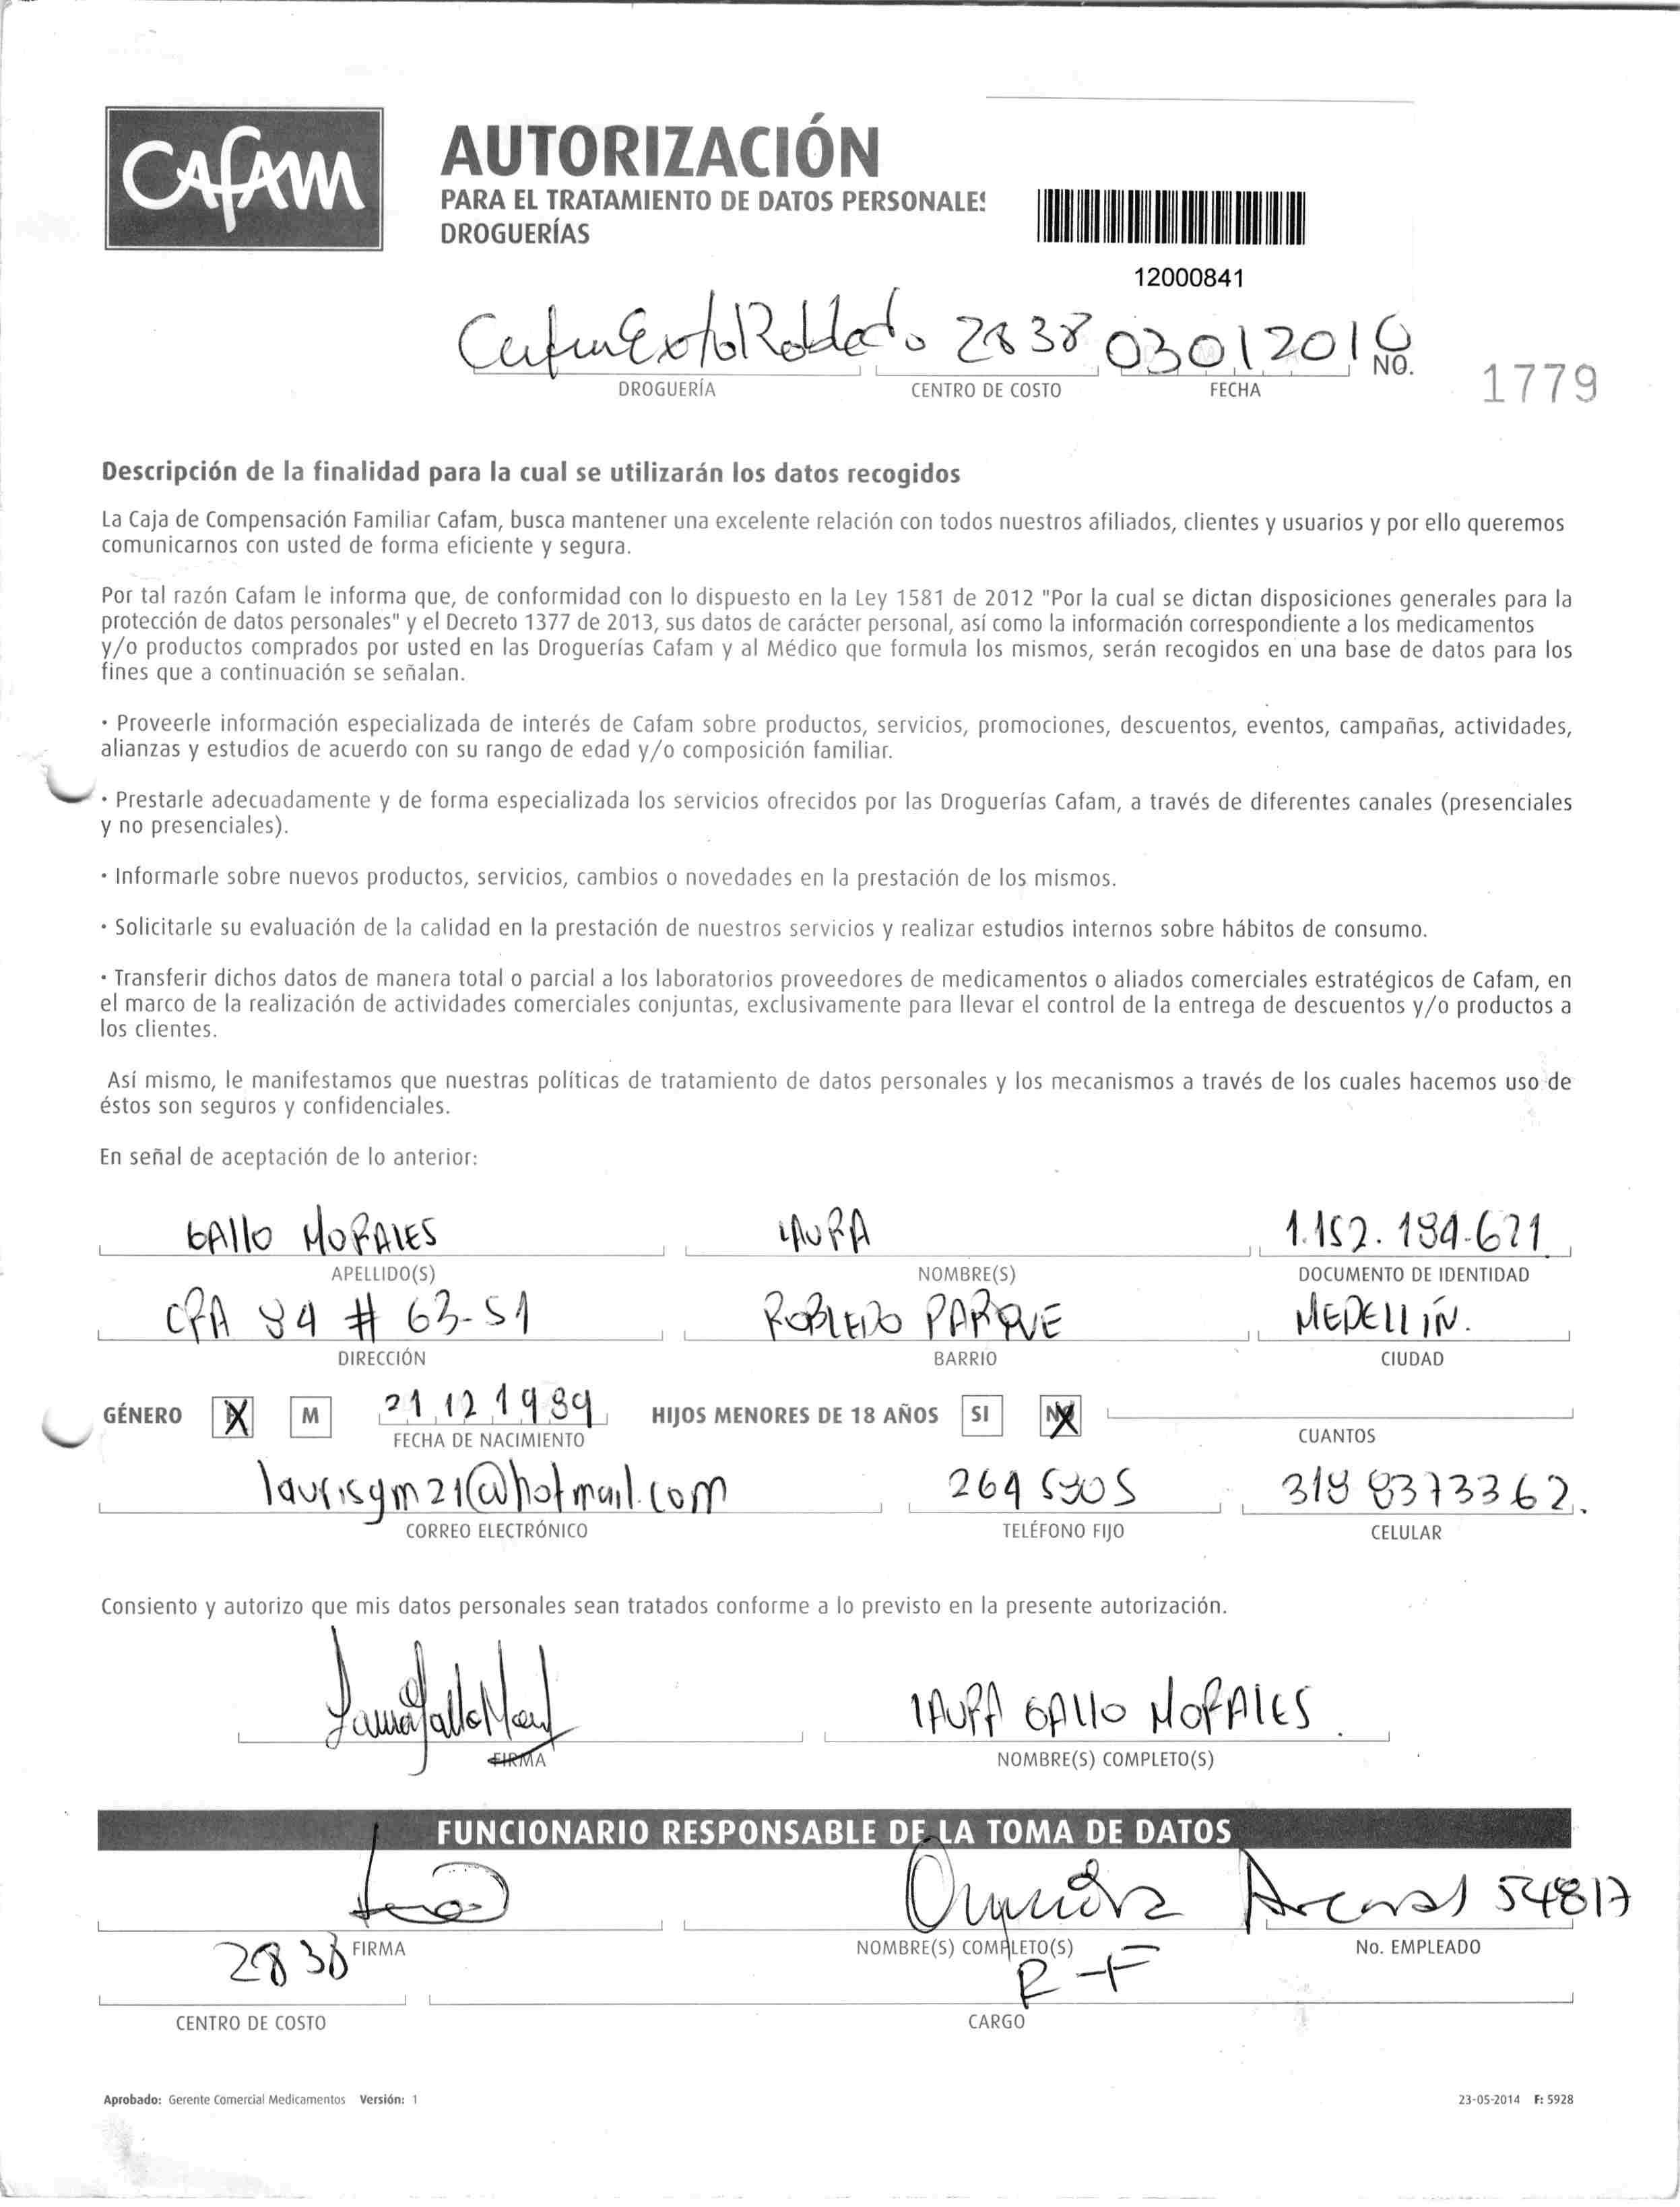 Cafam
AUTORIZACIÓN
PARA EL TRATAMIENTO DE DATOS PERSONALES
DROGUERÍAS
12000841
Cafam Exito Robledo 2838 03012016
DROGUERÍA CENTRO DE COSTO FECHA NO. 1779
Descripción de la finalidad para la cual se utilizarán los datos recogidos
La Caja de Compensación Familiar Cafam, busca mantener una excelente relación con todos nuestros afiliados, clientes y usuarios y por ello queremos
comunicarnos con usted de forma eficiente y segura.
Por tal razón Cafam le informa que, de conformidad con lo dispuesto en la Ley 1581 de 2012 "Por la cual se dictan disposiciones generales para la
protección de datos personales" y el Decreto 1377 de 2013, sus datos de carácter personal, así como la información correspondiente a los medicamentos
y/o productos comprados por usted en las Droguerías Cafam y al Médico que formula los mismos, serán recogidos en una base de datos para los
fines que a continuación se señalan.
· Proveerle información especializada de interés de Cafam sobre productos, servicios, promociones, descuentos, eventos, campañas, actividades,
alianzas y estudios de acuerdo con su rango de edad y/o composición familiar.
· Prestarle adecuadamente y de forma especializada los servicios ofrecidos por las Droguerías Cafam, a través de diferentes canales (presenciales
y no presenciales).
· Informarle sobre nuevos productos, servicios, cambios o novedades en la prestación de los mismos.
· Solicitarle su evaluación de la calidad en la prestación de nuestros servicios y realizar estudios internos sobre hábitos de consumo.
· Transferir dichos datos de manera total o parcial a los laboratorios proveedores de medicamentos o aliados comerciales estratégicos de Cafam, en
el marco de la realización de actividades comerciales conjuntas, exclusivamente para llevar el control de la entrega de descuentos y/o productos a
los clientes.
Así mismo, le manifestamos que nuestras políticas de tratamiento de datos personales y los mecanismos a través de los cuales hacemos uso de
éstos son seguros y confidenciales.
En señal de aceptación de lo anterior:
GALLO MORALES LAURA 1.152.184.671
APELLIDO(S) NOMBRE(S) DOCUMENTO DE IDENTIDAD
CRA 84 # 63-51 ROBLEDO PARQUE MEDELLIN.
DIRECCIÓN BARRIO CIUDAD
GÉNERO F M 21 12 1989 HIJOS MENORES DE 18 AÑOS SI NO
FECHA DE NACIMIENTO CUANTOS
laurisgm21@hotmail.com 264 5805 318 8373362.
CORREO ELECTRÓNICO TELÉFONO FIJO CELULAR
Consiento y autorizo que mis datos personales sean tratados conforme a lo previsto en la presente autorización.
Laura Gallo LAURA GALLO MORALES.
FIRMA NOMBRE(S) COMPLETO(S)
FUNCIONARIO RESPONSABLE DE LA TOMA DE DATOS
54817
FIRMA NOMBRE(S) COMPLETO(S) No. EMPLEADO
2838 R-F
CENTRO DE COSTO CARGO
Aprobado: Gerente Comercial Medicamentos Versión: 1 23-05-2014 F: 5928